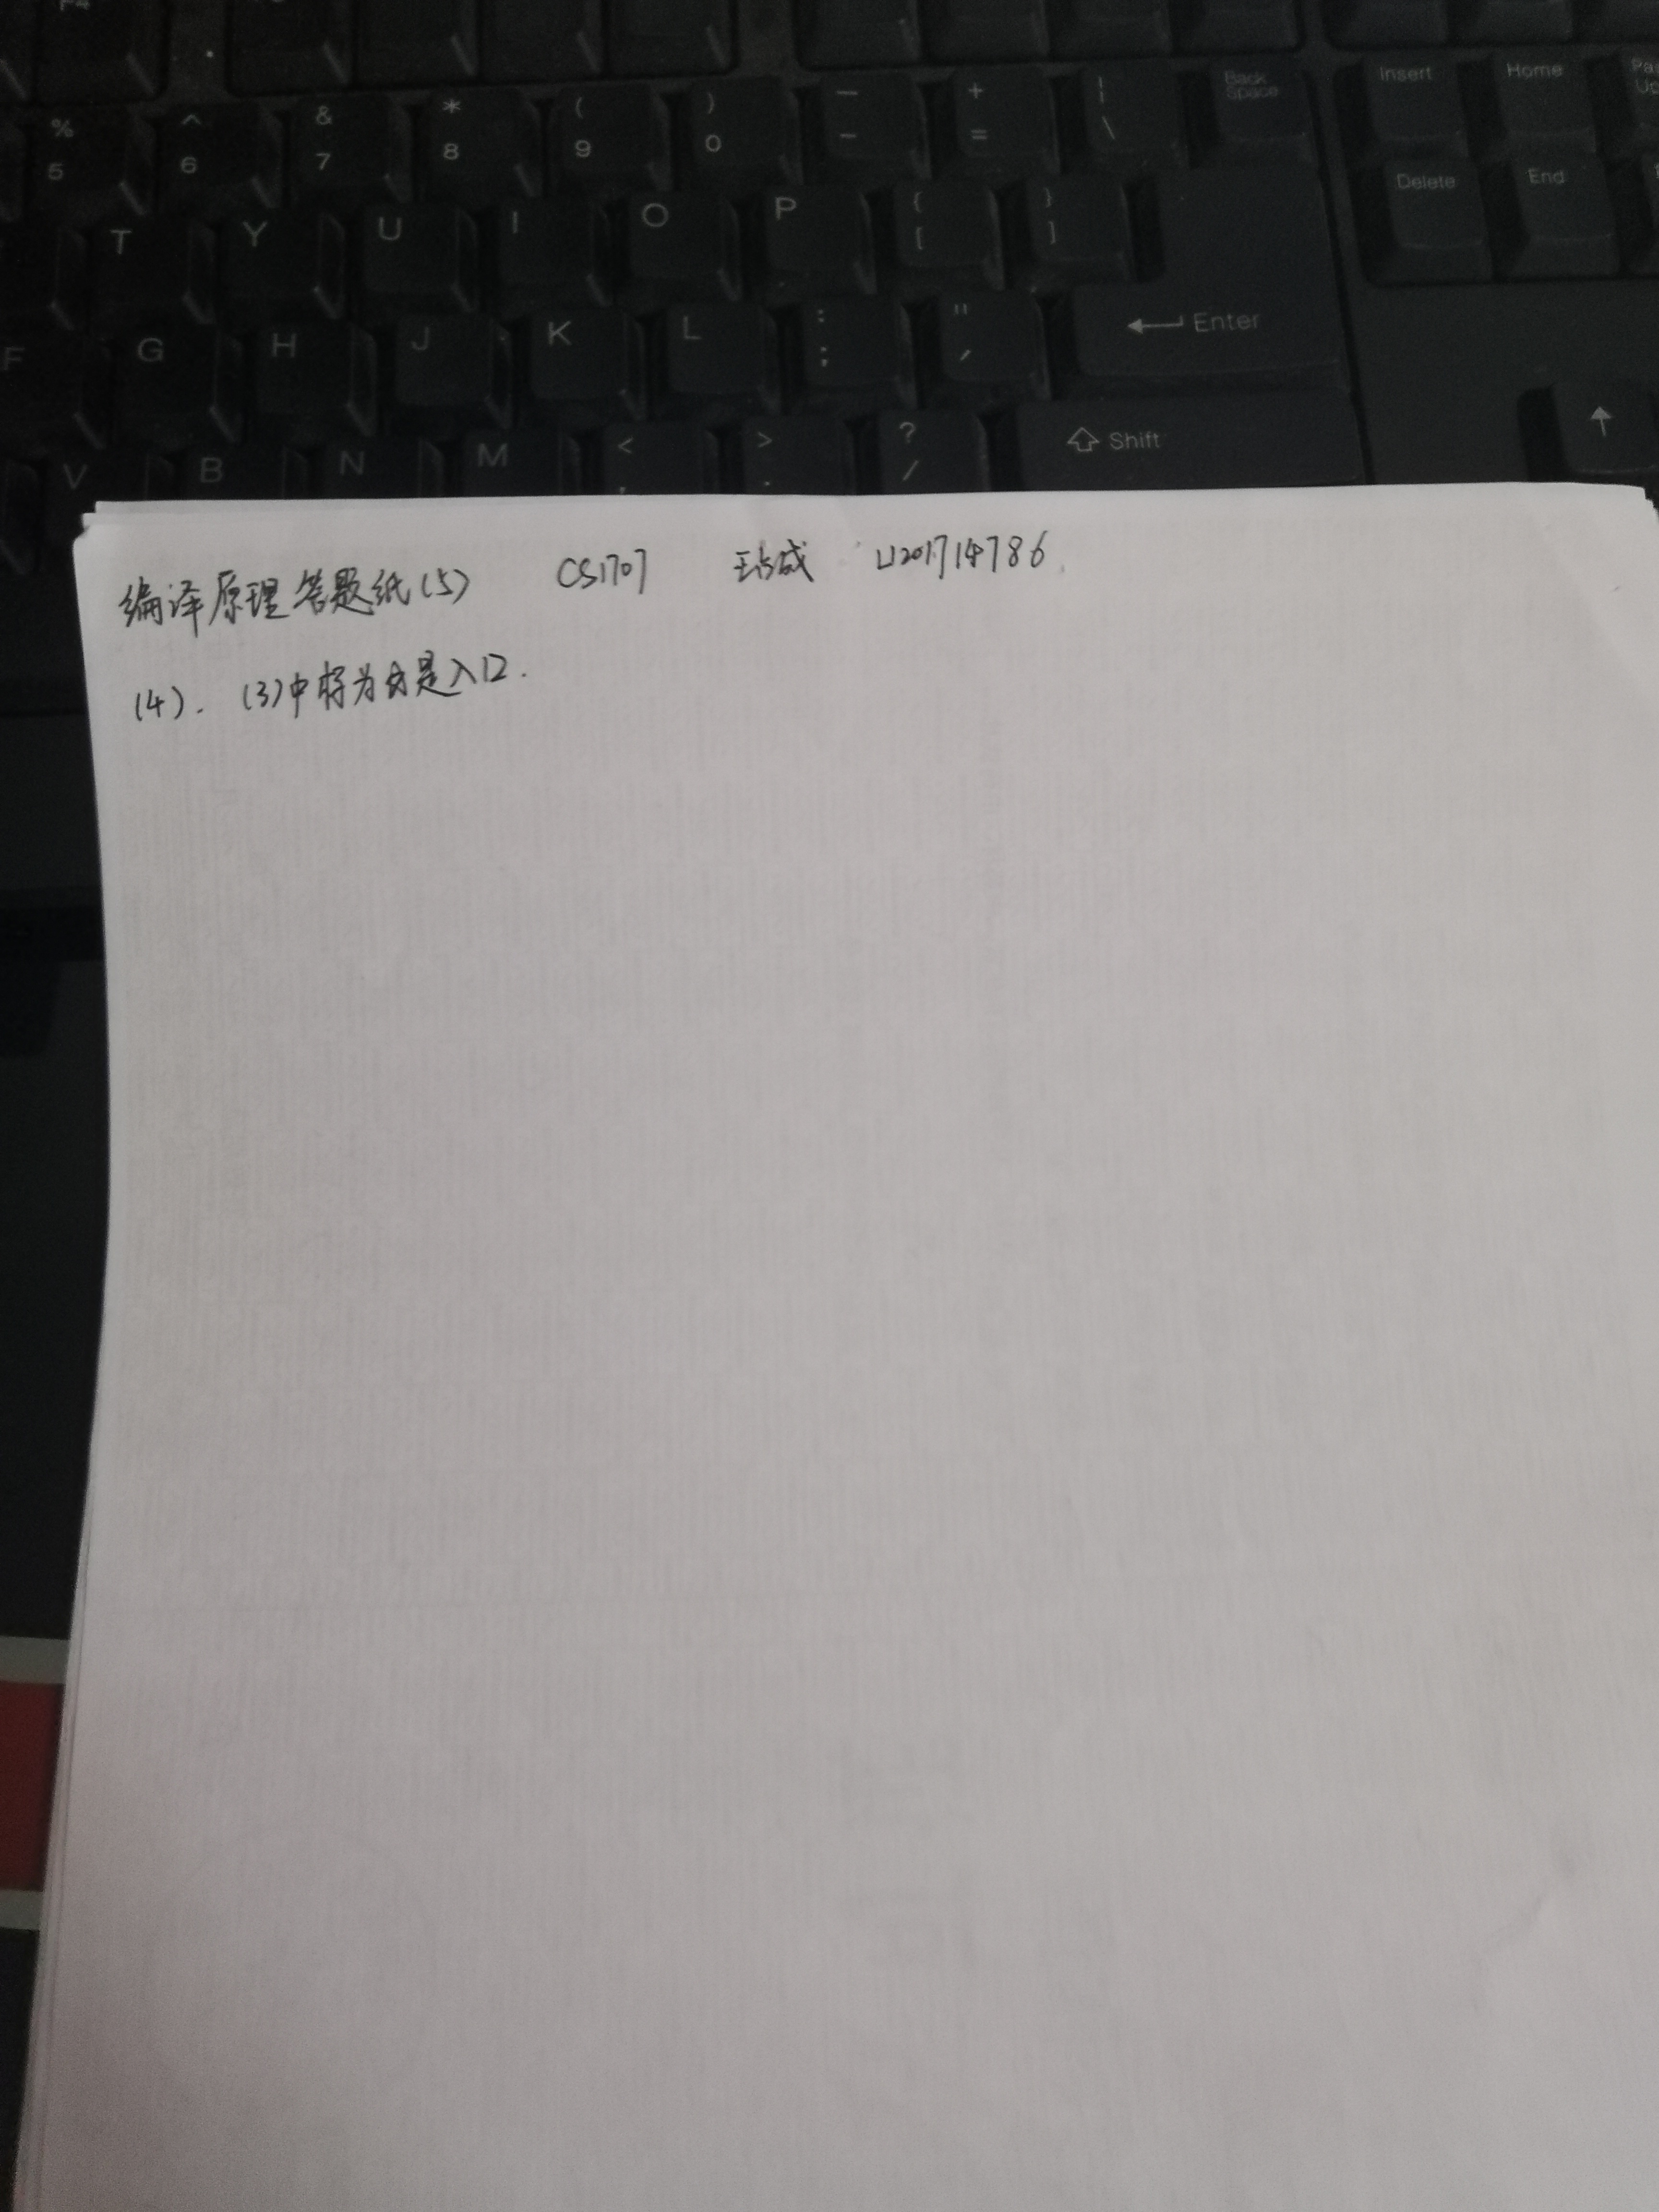 F4
% ^ & * ( ) — + | Back Space Insert Home
5 6 7 8 9 0 - = \
T Y U I O P { [ } ] Delete End
F G H J K L : ; " ' ← Enter
V B N M < , > . ? / ⇧ Shift ↑
编译原理答题纸(5) CS1707 U201714786
(4). (3)中将为 是入口.